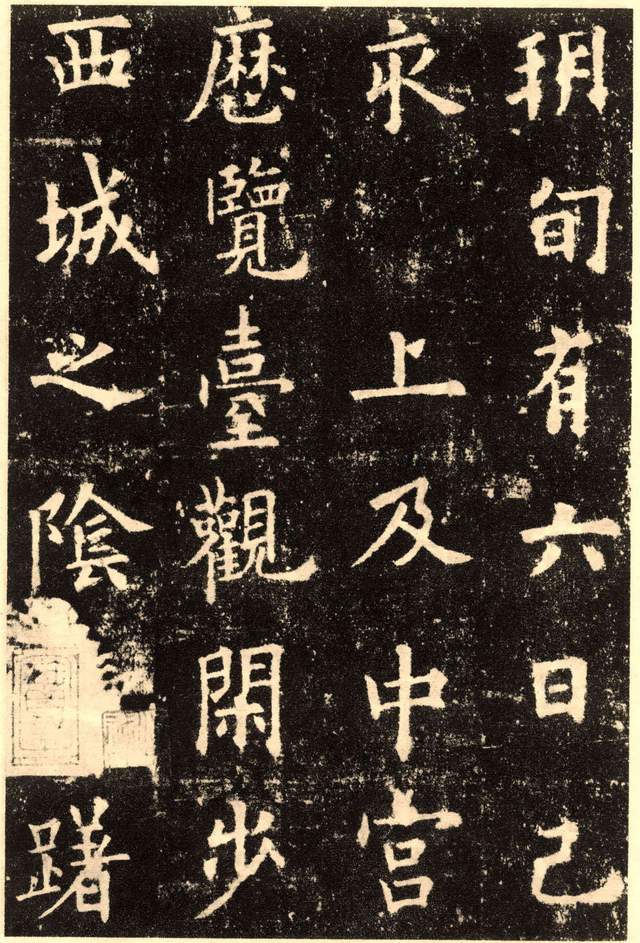 玥旬有六日己
亦 上及中宫
歷覽臺觀閑步
西城之陰躇